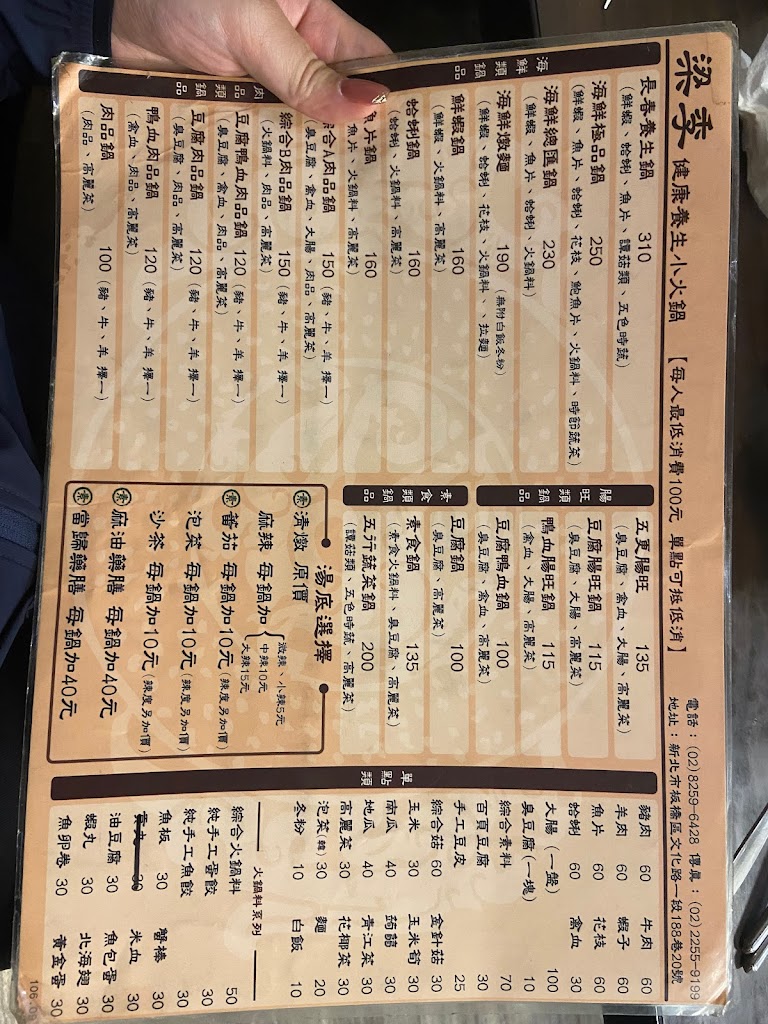 梁季 健康養生小火鍋 【每人最低消費100元 單點可抵低消】
電話：(02)8259-6428 傳真：(02)2255-9199
地址：新北市板橋區文化路一段188巷20號
海鮮類鍋品
長春養生鍋 310
(鮮蝦、蛤蜊、魚片、蕈菇類、五色時蔬)
海鮮極品鍋 250
(鮮蝦、魚片、蛤蜊、花枝、鮑魚片、火鍋料、時節蔬菜)
海鮮總匯鍋 230
(鮮蝦、魚片、蛤蜊、火鍋料)
海鮮燉麵 190 (無附白飯冬粉)
(鮮蝦、蛤蜊、花枝、火鍋料、、拉麵)
鮮蝦鍋 160
(鮮蝦、火鍋料、高麗菜)
蛤蜊鍋 160
(蛤蜊、火鍋料、高麗菜)
魚片鍋 160
魚片、火鍋料、高麗菜)
肉類鍋品
綜合A肉品鍋 150 (豬、牛、羊 擇一)
臭豆腐、禽血、大腸、肉品、高麗菜)
綜合B肉品鍋 150 (豬、牛、羊 擇一)
(火鍋料、肉品、高麗菜)
豆腐鴨血肉品鍋 120 (豬、牛、羊 擇一)
(臭豆腐、禽血、肉品、高麗菜)
豆腐肉品鍋 120 (豬、牛、羊 擇一)
(臭豆腐、肉品、高麗菜)
鴨血肉品鍋 120 (豬、牛、羊 擇一)
(禽血、肉品、高麗菜)
肉品鍋 100 (豬、牛、羊 擇一)
(肉品、高麗菜)
腸旺類鍋品
五更腸旺 135
(臭豆腐、禽血、大腸、高麗菜)
豆腐腸旺鍋 115
(臭豆腐、大腸、高麗菜)
鴨血腸旺鍋 115
(禽血、大腸、高麗菜)
豆腐鴨血鍋 100
(臭豆腐、禽血、高麗菜)
素食類鍋品
豆腐鍋 100
(臭豆腐、高麗菜)
素食鍋 135
(素食火鍋料、臭豆腐、高麗菜)
五行蔬菜鍋 200
(蕈菇類、五色時蔬、高麗菜)
湯底選擇
素 清燉 原價
麻辣 每鍋加 微辣、小辣5元
中辣10元
大辣15元
素 蕃茄 每鍋加10元 (辣度另加價)
泡菜 每鍋加10元 (辣度另加價)
沙茶 每鍋加10元 (辣度另加價)
素 麻油藥膳 每鍋加40元
素 當歸藥膳 每鍋加40元
單點類
豬肉 60 牛肉 60
羊肉 60 蝦子 60
魚片 60 花枝 60
蛤蜊 60 禽血 30
大腸 (一盤) 100
臭豆腐 (一塊) 10
綜合素料 70
百頁豆腐 30
手工豆皮 25
綜合菇 60 金針菇 30
玉米 30 玉米筍 30
南瓜 40 蒟蒻 30
地瓜 40 青江菜 30
高麗菜 30 花椰菜 30
泡菜 (韓) 30 麵 20
冬粉 10 白飯 10
火鍋料系列
綜合火鍋料 50
純手工蛋餃 30
純手工魚餃 30
魚板 30 蟹棒 30
30 米血 30
油豆腐 30 魚包蛋 30
蝦丸 30 北海翅 30
魚卵卷 30 黃金蛋 30